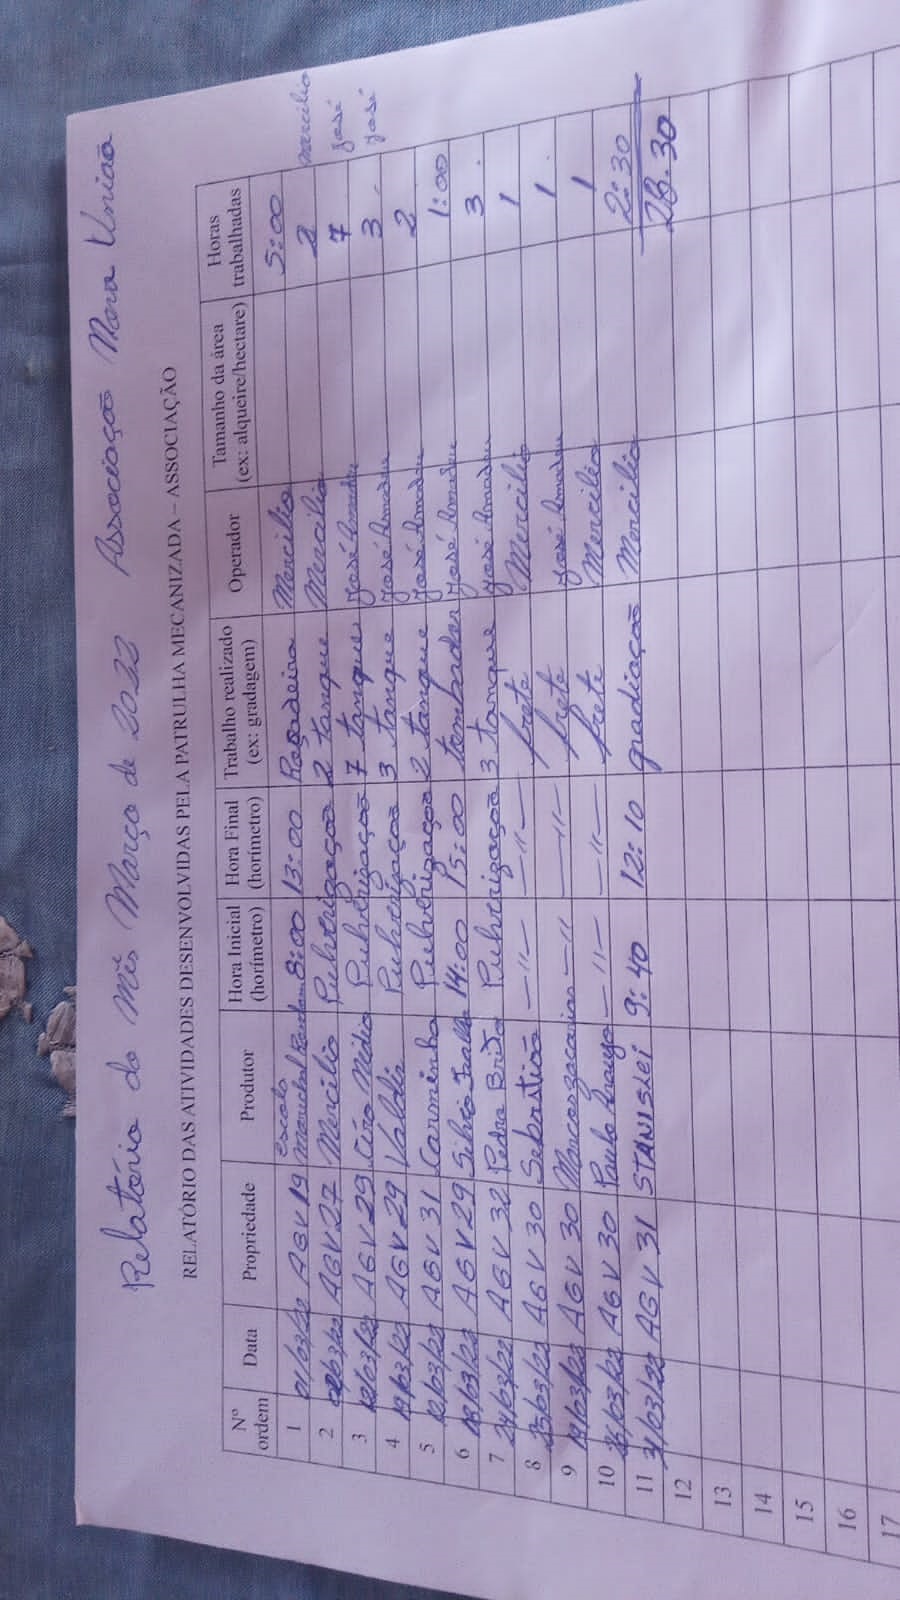 Relatório do mês Março de 2022 Associação Nova União
RELATÓRIO DAS ATIVIDADES DESENVOLVIDAS PELA PATRULHA MECANIZADA – ASSOCIAÇÃO
Nº ordem Data Propriedade Produtor Hora Inicial (horímetro) Hora Final (horímetro) Trabalho realizado (ex: gradagem) Operador Tamanho da área (ex: alqueire/hectare) Horas trabalhadas
1 01/03/22 AGV 19 Escola Marechal 8:00 13:00 Roçadeira Mercilio 5:00
2 02/03/22 AGV 27 Mercilio Pulverização 2 tanque Mercilio 2 mercilio
3 12/03/22 AGV 29 Ciro Pulverização 7 tanque José Amadeu 7 José
4 12/03/22 AGV 29 Valdi Pulverização 3 tanque José Amadeu 3 José
5 12/03/22 AGV 31 Carminho Pulverização 2 tanque José Amadeu 2
6 18/03/22 AGV 29 Silvio 14:00 15:00 tombador José Amadeu 1:00
7 24/03/22 AGV 32 Pedro Brito Pulverização 3 tanque José Amadeu 3
8 25/03/22 AGV 30 Sebastião —"— —"— frete Mercilio 1
9 19/03/22 AGV 30 Marcos —"— —"— frete José Amadeu 1
10 26/03/22 AGV 30 Paulo Araujo —"— —"— frete Mercilio 1
11 31/03/22 AGV 31 STANISLEI 9:40 12:10 gradiação Mercilio 2:30
12 28.30
13
14
15
16
17